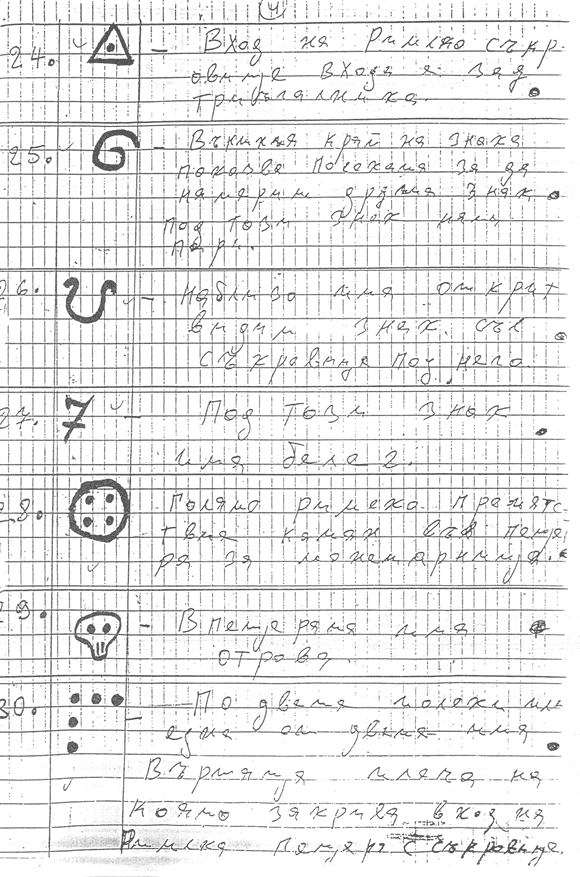 4
24. - Вход на Римляно съкр
овище входа е зад
триъгалника.
25. - Външния край на знака
показва посоката за да
намерим другия знак
под този знак няма
пари.
26. - наблизо има открит
видим знак със
съкравище под него.
27. 7 - Под този знак
има беле г.
28. Голямо римско препятс-
твие камък във пеще
ра за
29. - В пещеряма има
отрова.
30. - По двете посоки
една от двете има
въртяща плоча на
която закрива вход на
Римска пещера с съкровище.